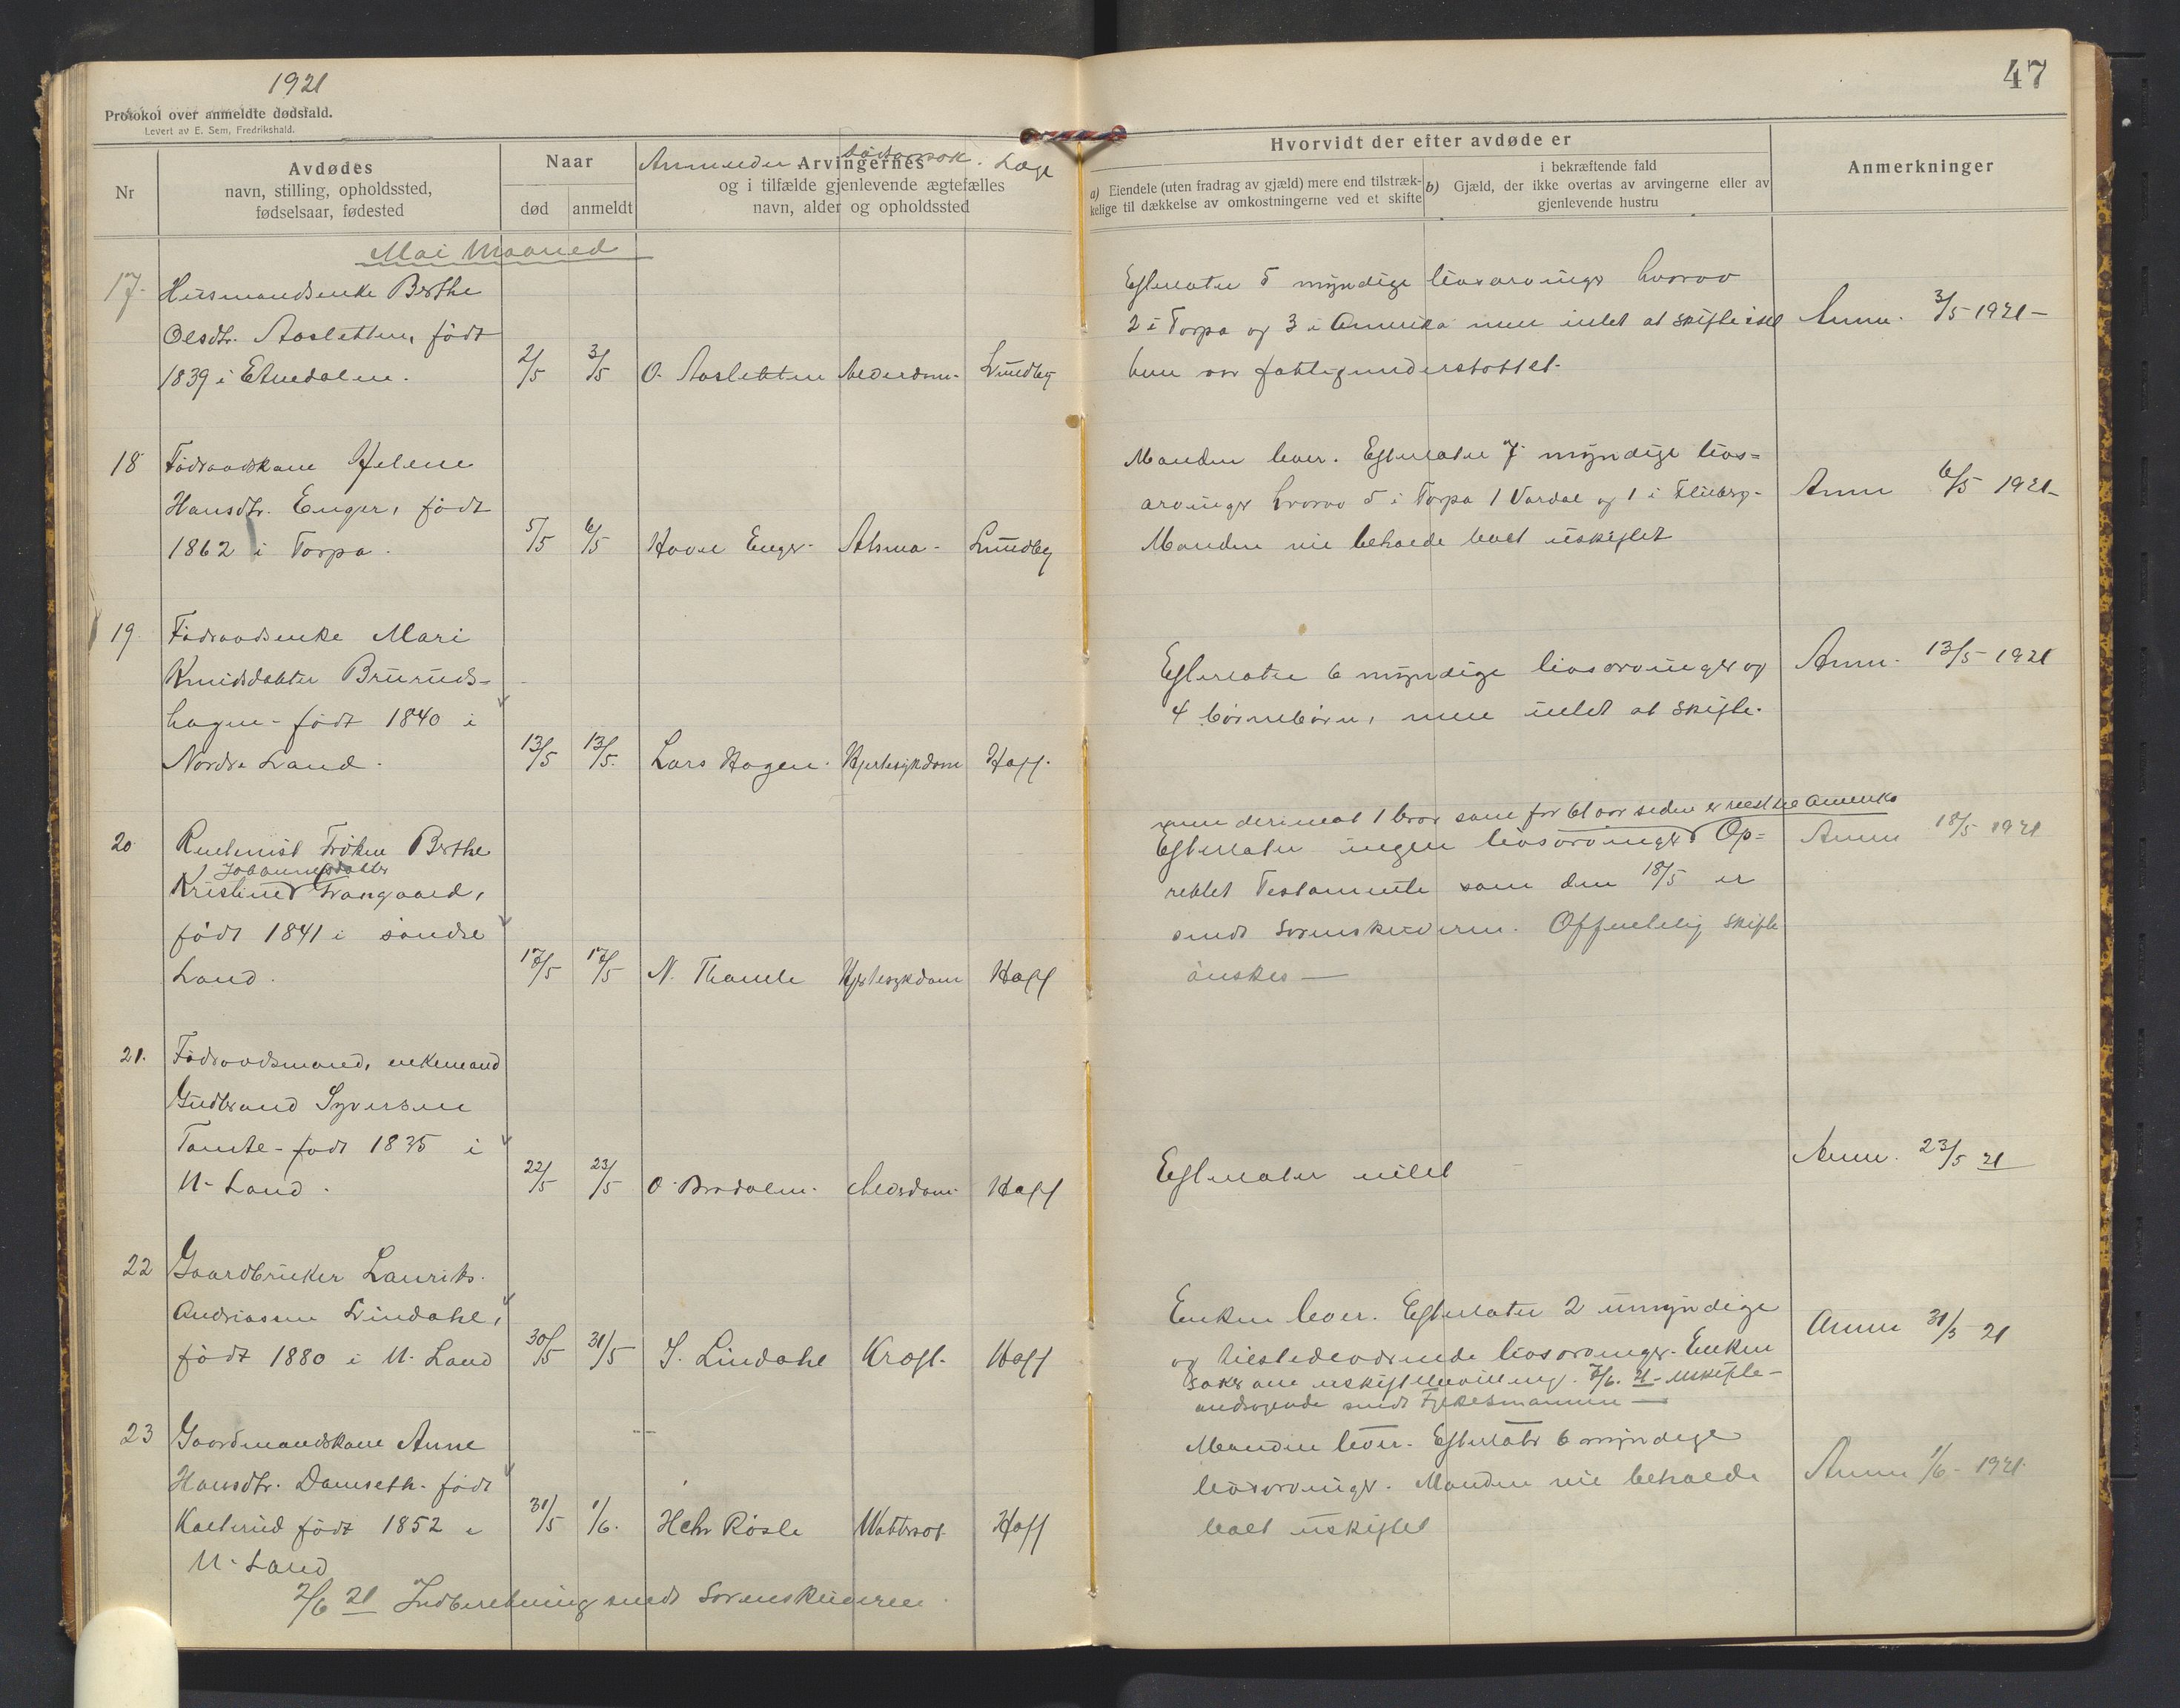 1921
47
Protokol over anmeldte dødsfald.
Levert av E. Sem, Fredrikshald.
Nr
Avdødes
navn, stilling, opholdssted,
fødselsaar, fødested
Naar
død
anmeldt
Anmelder dødsarsak. Læge
Arvingernes
og i tilfælde gjenlevende ægtefælles
navn, alder og opholdssted
Hvorvidt der efter avdøde er
a) Eiendele (uten fradrag av gjæld) mere end tilstræk-
kelige til dækkelse av omkostningerne ved et skifte
i bekræftende fald
b) Gjæld, der ikke overtas av arvingerne eller av
gjenlevende hustru
Anmerkninger
Mai Maaned
17. Husmandsenke Berthe
Olsdtr. Aasletten, født
1839 i Etnedalen.
2/5 3/5 O. Aasletten Alderdom. Lundby
Efterlater 5 myndige livsarvinger hvorav
2 i Torpa og 3 i Amerika men intet at skifte idet
hun var fattigunderstøttet.
Anm. 3/5 1921 -
18 Føderaadskone Helene
Hansdtr. Enger, født
1862 i Torpa.
5/5 6/5 Hovel Enger. Astma - Lundby
Manden lever. Efterlater 7 myndige livs=
arvinger hvorav 5 i Torpa 1 Vardal og 1 i
Manden vil beholde boet uskiftet
Anm 6/5 1921-
19. Føderaadsenke Mari
Knudsdatter Bruruds-
hagen - født 1840 i
Nordre Land.
13/5 13/5. Lars Hagen. Hjertesykdom Hoff.
Efterlater 6 myndige livsarvinger og
4 børnebørn, men intet at skifte.
Anm. 13/5 1921
20 Rentenist Frøken Berthe
Johannesdatter
Kristine Frangaard,
født 1841 i søndre
Land.
17/5 17/5 N. Thomle Hjertesykdom Hoff
men derimot 1 bror som for 61 aar siden er reist til Amerika
Efterlater ingen livsarvinger Op=
rettet Testamente som den 18/5 er
sendt sorenskriveren. Offentlig skifte
ønskes —
Anm 18/5 1921
21. Føderaadsmand, enkemand
Gudbrand Syversen
Tomte - født 1835 i
N. Land.
22/5 23/5 O. Brodalen. Alderdom. Hoff
Efterlater intet
Anm. 23/5 21
22 Gaardbruker Laurits
Andreassen Lindahl,
født 1880 i N. Land
30/5 31/5 S. Lindahl Kræft. Hoff
Enken lever. Efterlater 2 umyndige
og tilstedeværende livsarvinger. Enken
søker om uskiftebevilling. 7/6. 21 - uskifte-
andragende sendt Fylkesmannen —
Anm 31/5 21
23 Gaardmandskone Anne
Hansdtr. Damseth. født
født 1852 i
N. Land
31/5 1/6. Hchr Røsle Vattersot Hoff
Manden lever. Efterlater 6 myndige
livsarvinger. Manden vil beholde
boet uskiftet
Anm 1/6 - 1921.
2/6 21 Indberetning sendt sorenskriveren.